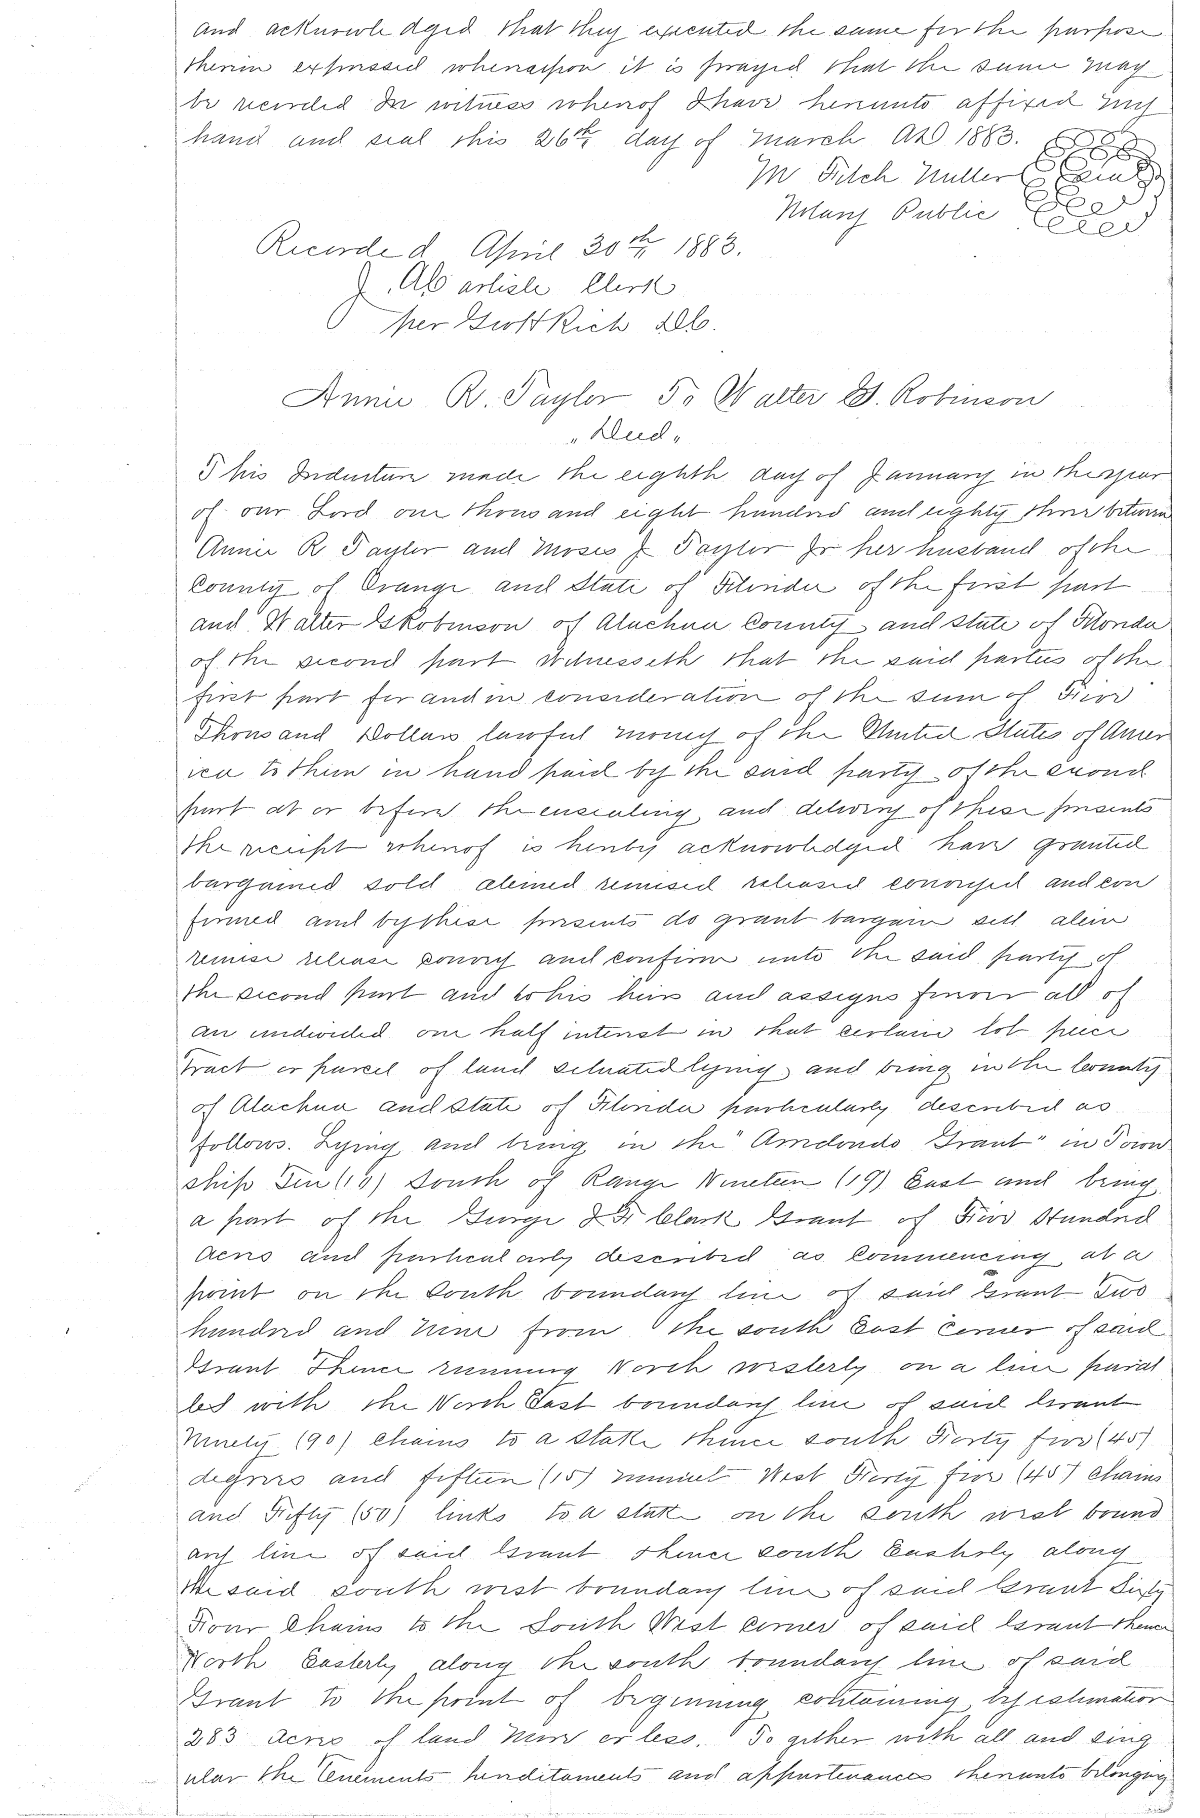 and acknowledged that they executed the same for the purpose
therein expressed whereupon it is prayed that the same may
be recorded In witness whereof I have hereunto affixed my
hand and seal this 26th day of March AD 1883.
M Fitch Miller Seal
Notary Public
Recorded April 30th 1883.
J. A. Carlisle Clerk
per Geo H Rich D.C.
Annie R. Taylor To Walter G. Robinson
"Deed"
This Indenture made the eighth day of January in the year
of our Lord one thousand eight hundred and eighty three between
Annie R Taylor and Moses J Taylor Jr her husband of the
County of Orange and State of Florida of the first part
and Walter G Robinson of Alachua County and State of Florida
of the second part Witnesseth that the said parties of the
first part for and in consideration of the sum of Five
Thousand Dollars lawful money of the United States of Amer
ica to them in hand paid by the said party of the second
part at or before the ensealing and delivery of these presents
the receipt whereof is hereby acknowledged have granted
bargained sold aliened remised released conveyed and con
firmed and by these presents do grant bargain sell alien
remise release convey and confirm unto the said party of
the second part and to his heirs and assigns forever all of
an undivided one half interest in that certain lot piece
tract or parcel of land situated lying and being in the County
of Alachua and State of Florida particularly described as
follows. Lying and being in the "Arredondo Grant" in Town
ship Ten (10) South of Range Nineteen (19) East and being
a part of the George J F Clark Grant of Five Hundred
Acres and particularly described as Commencing at a
point on the South boundary line of said Grant Two
hundred and nine from the south East Corner of said
Grant Thence running North westerly on a line paral
led with the North East boundary line of said Grant
Ninety (90) Chains to a stake thence south Forty five (45)
degrees and fifteen (15) minuet West Forty five (45) Chains
and Fifty (50) links to a stake on the south west bound
ary line of said Grant thence south Easterly along
the said south west boundary line of said Grant Sixty
Four Chains to the South West corner of said Grant thence
North Easterly along the south boundary line of said
Grant to the point of beginning containing by estimation
283 acres of land more or less. To gether with all and sing
ular the Tenements hereditaments and appurtenances thereunto belonging